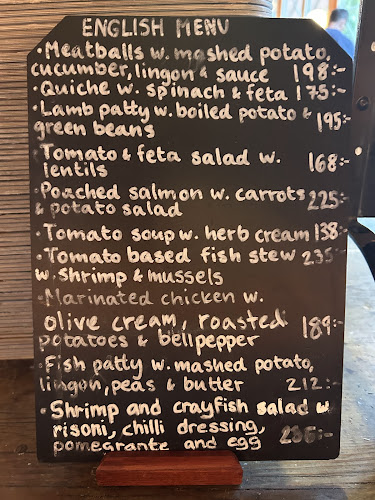 ENGLISH MENU
• Meatballs w. mashed potato,
cucumber, lingon & sauce 198:-
• Quiche w. spinach & feta 175:-
• Lamb patty w. boiled potato &
green beans 195:-
• Tomato & feta salad w.
lentils 168:-
• Poached salmon w. carrots
& potato salad 225:-
• Tomato soup w. herb cream 138:-
• Tomato based fish stew 235:-
w. shrimp & mussels
• Marinated chicken w.
olive cream, roasted
potatoes & bellpepper 189:-
• Fish patty w. mashed potato,
lingon, peas & butter 212:-
• Shrimp and crayfish salad w
risoni, chilli dressing,
pomegrante and egg :-